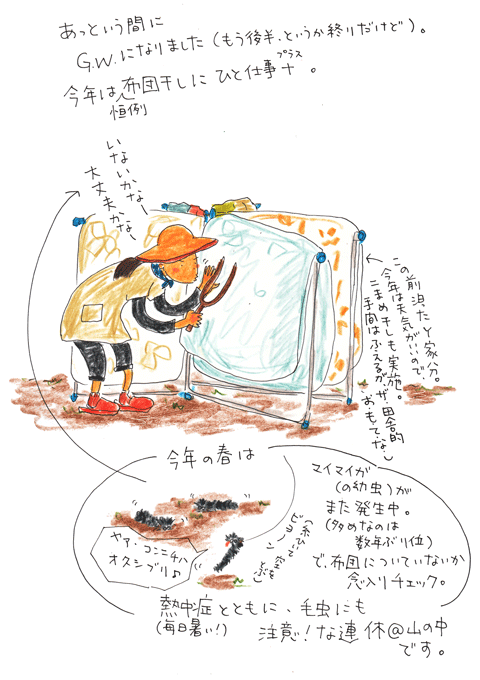 あっという間に
G.W.になりました(もう後半、というか終りだけど)。
今年は恒例布団干しに ひと仕事+プラス。
いないかなー
大丈夫かなー
この前浜だと家分。
今年は天気がいいので、
こまめ干しも実施。
手間はふえるがザ田舎的
お・もてなし
今年の春は
マイマイガ
(の幼虫)が
また発生中。
(多めなのは
数年ぶり位)
で、布団についていないか
念入りチェック。
ヤァ・コンニチハ
オクシブリ♪
ビヨーン
熱中症とともに、毛虫にも
(毎日暑い!)
注意!な連休@山の中
です。